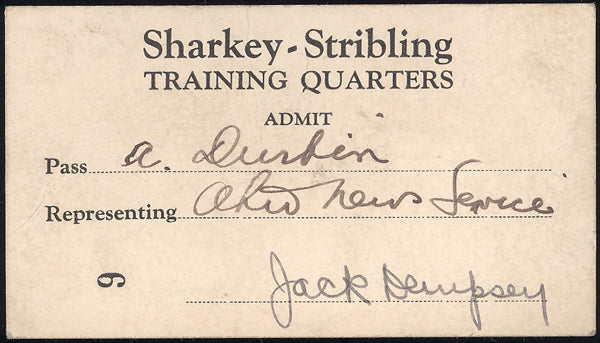 Sharkey - Stribling
TRAINING QUARTERS
ADMIT
Pass A. Durbin
Representing Ohio News Service
9
Jack Dempsey